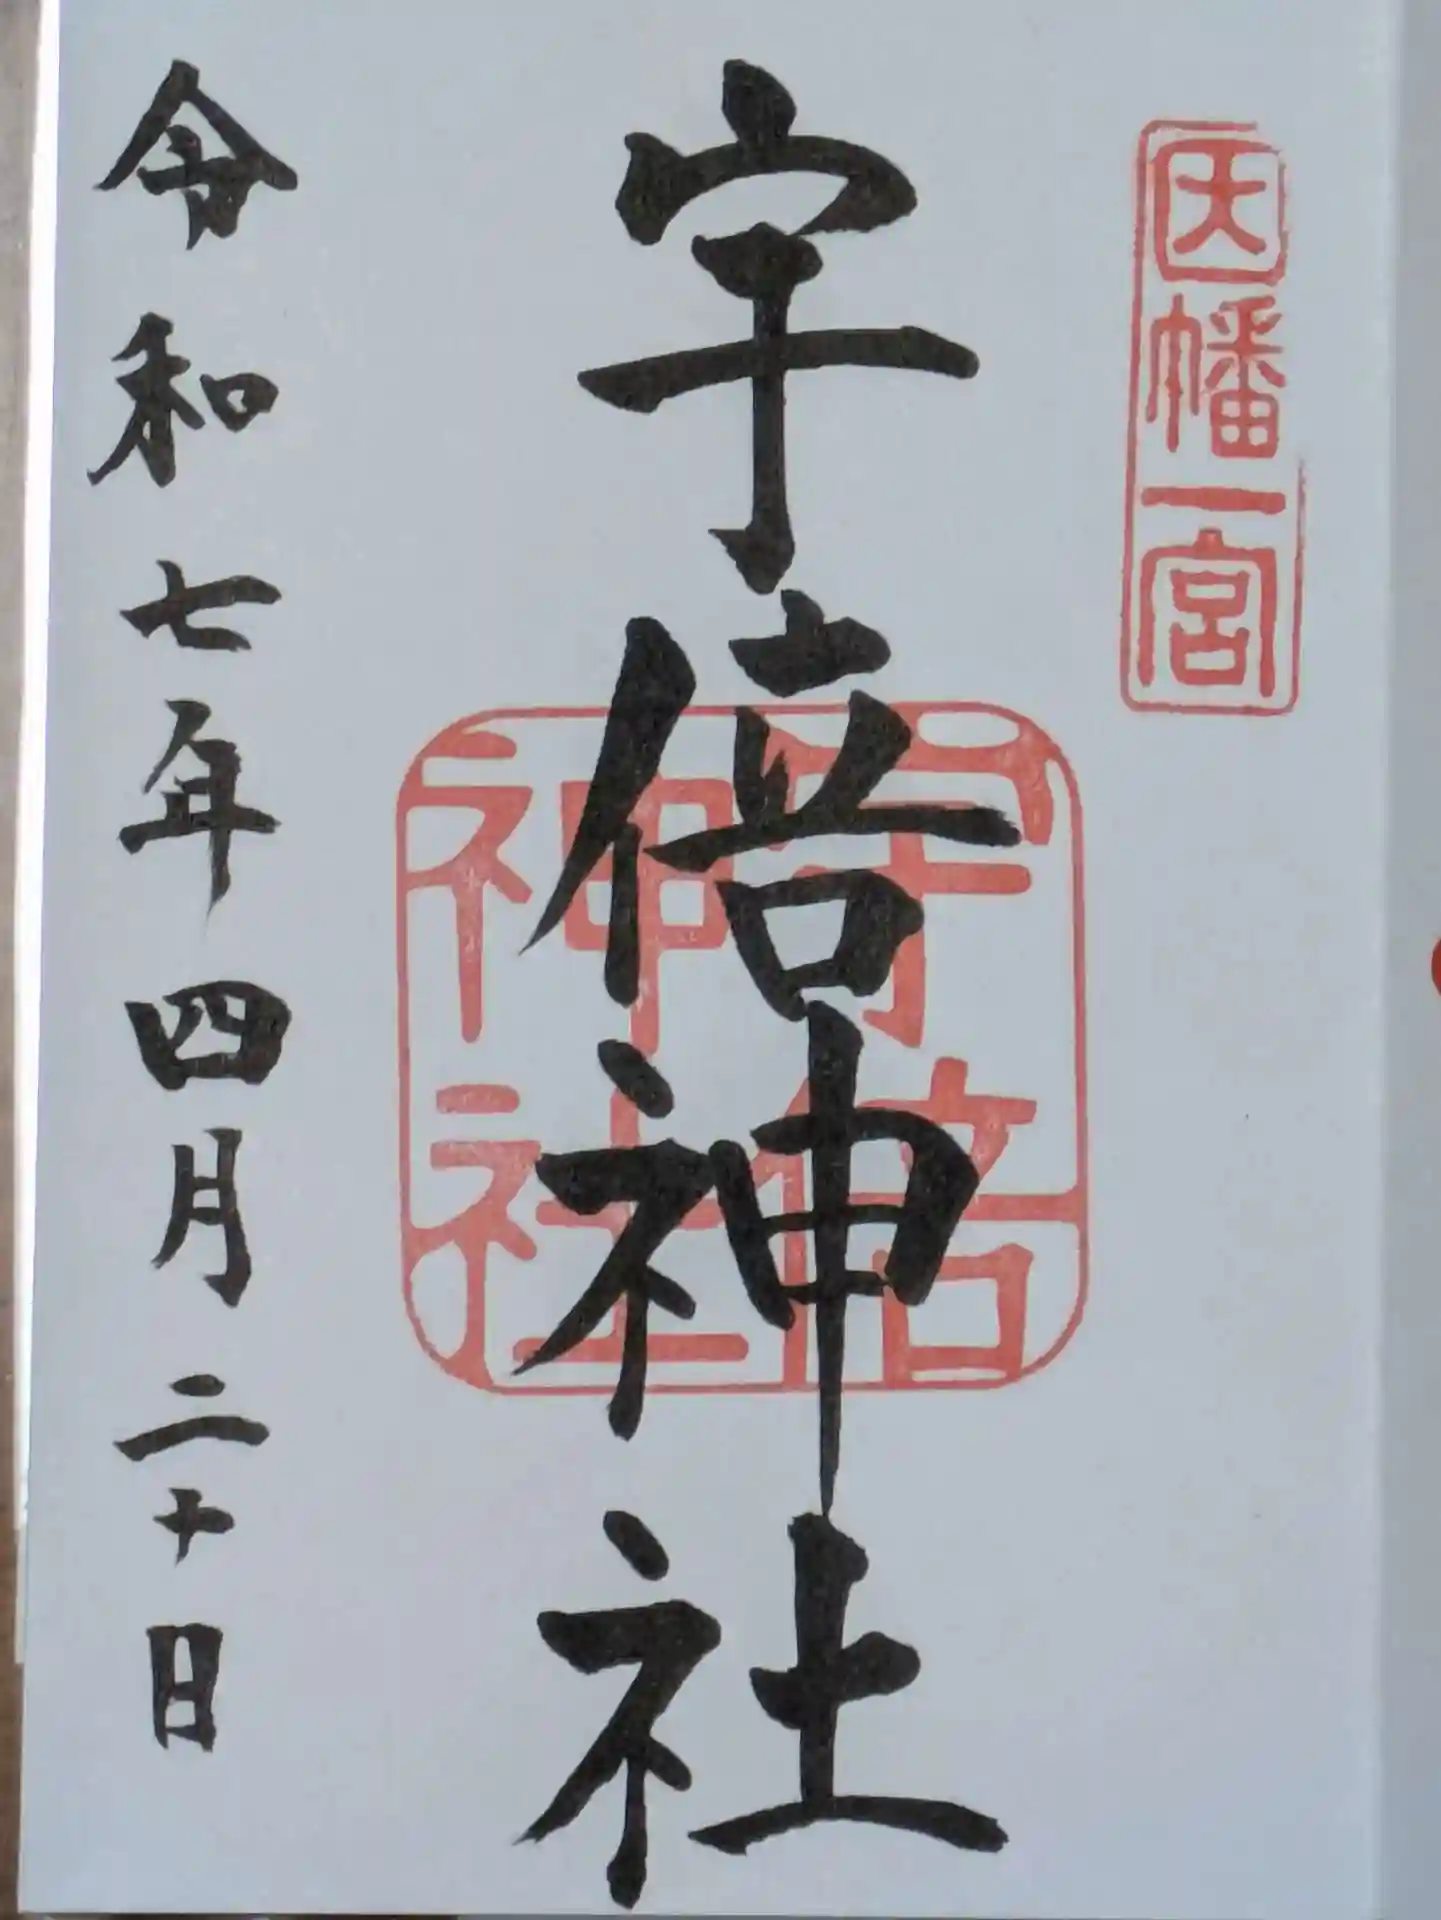 因幡一宮
宇倍神社
宇倍
神社
令和七年四月二十日